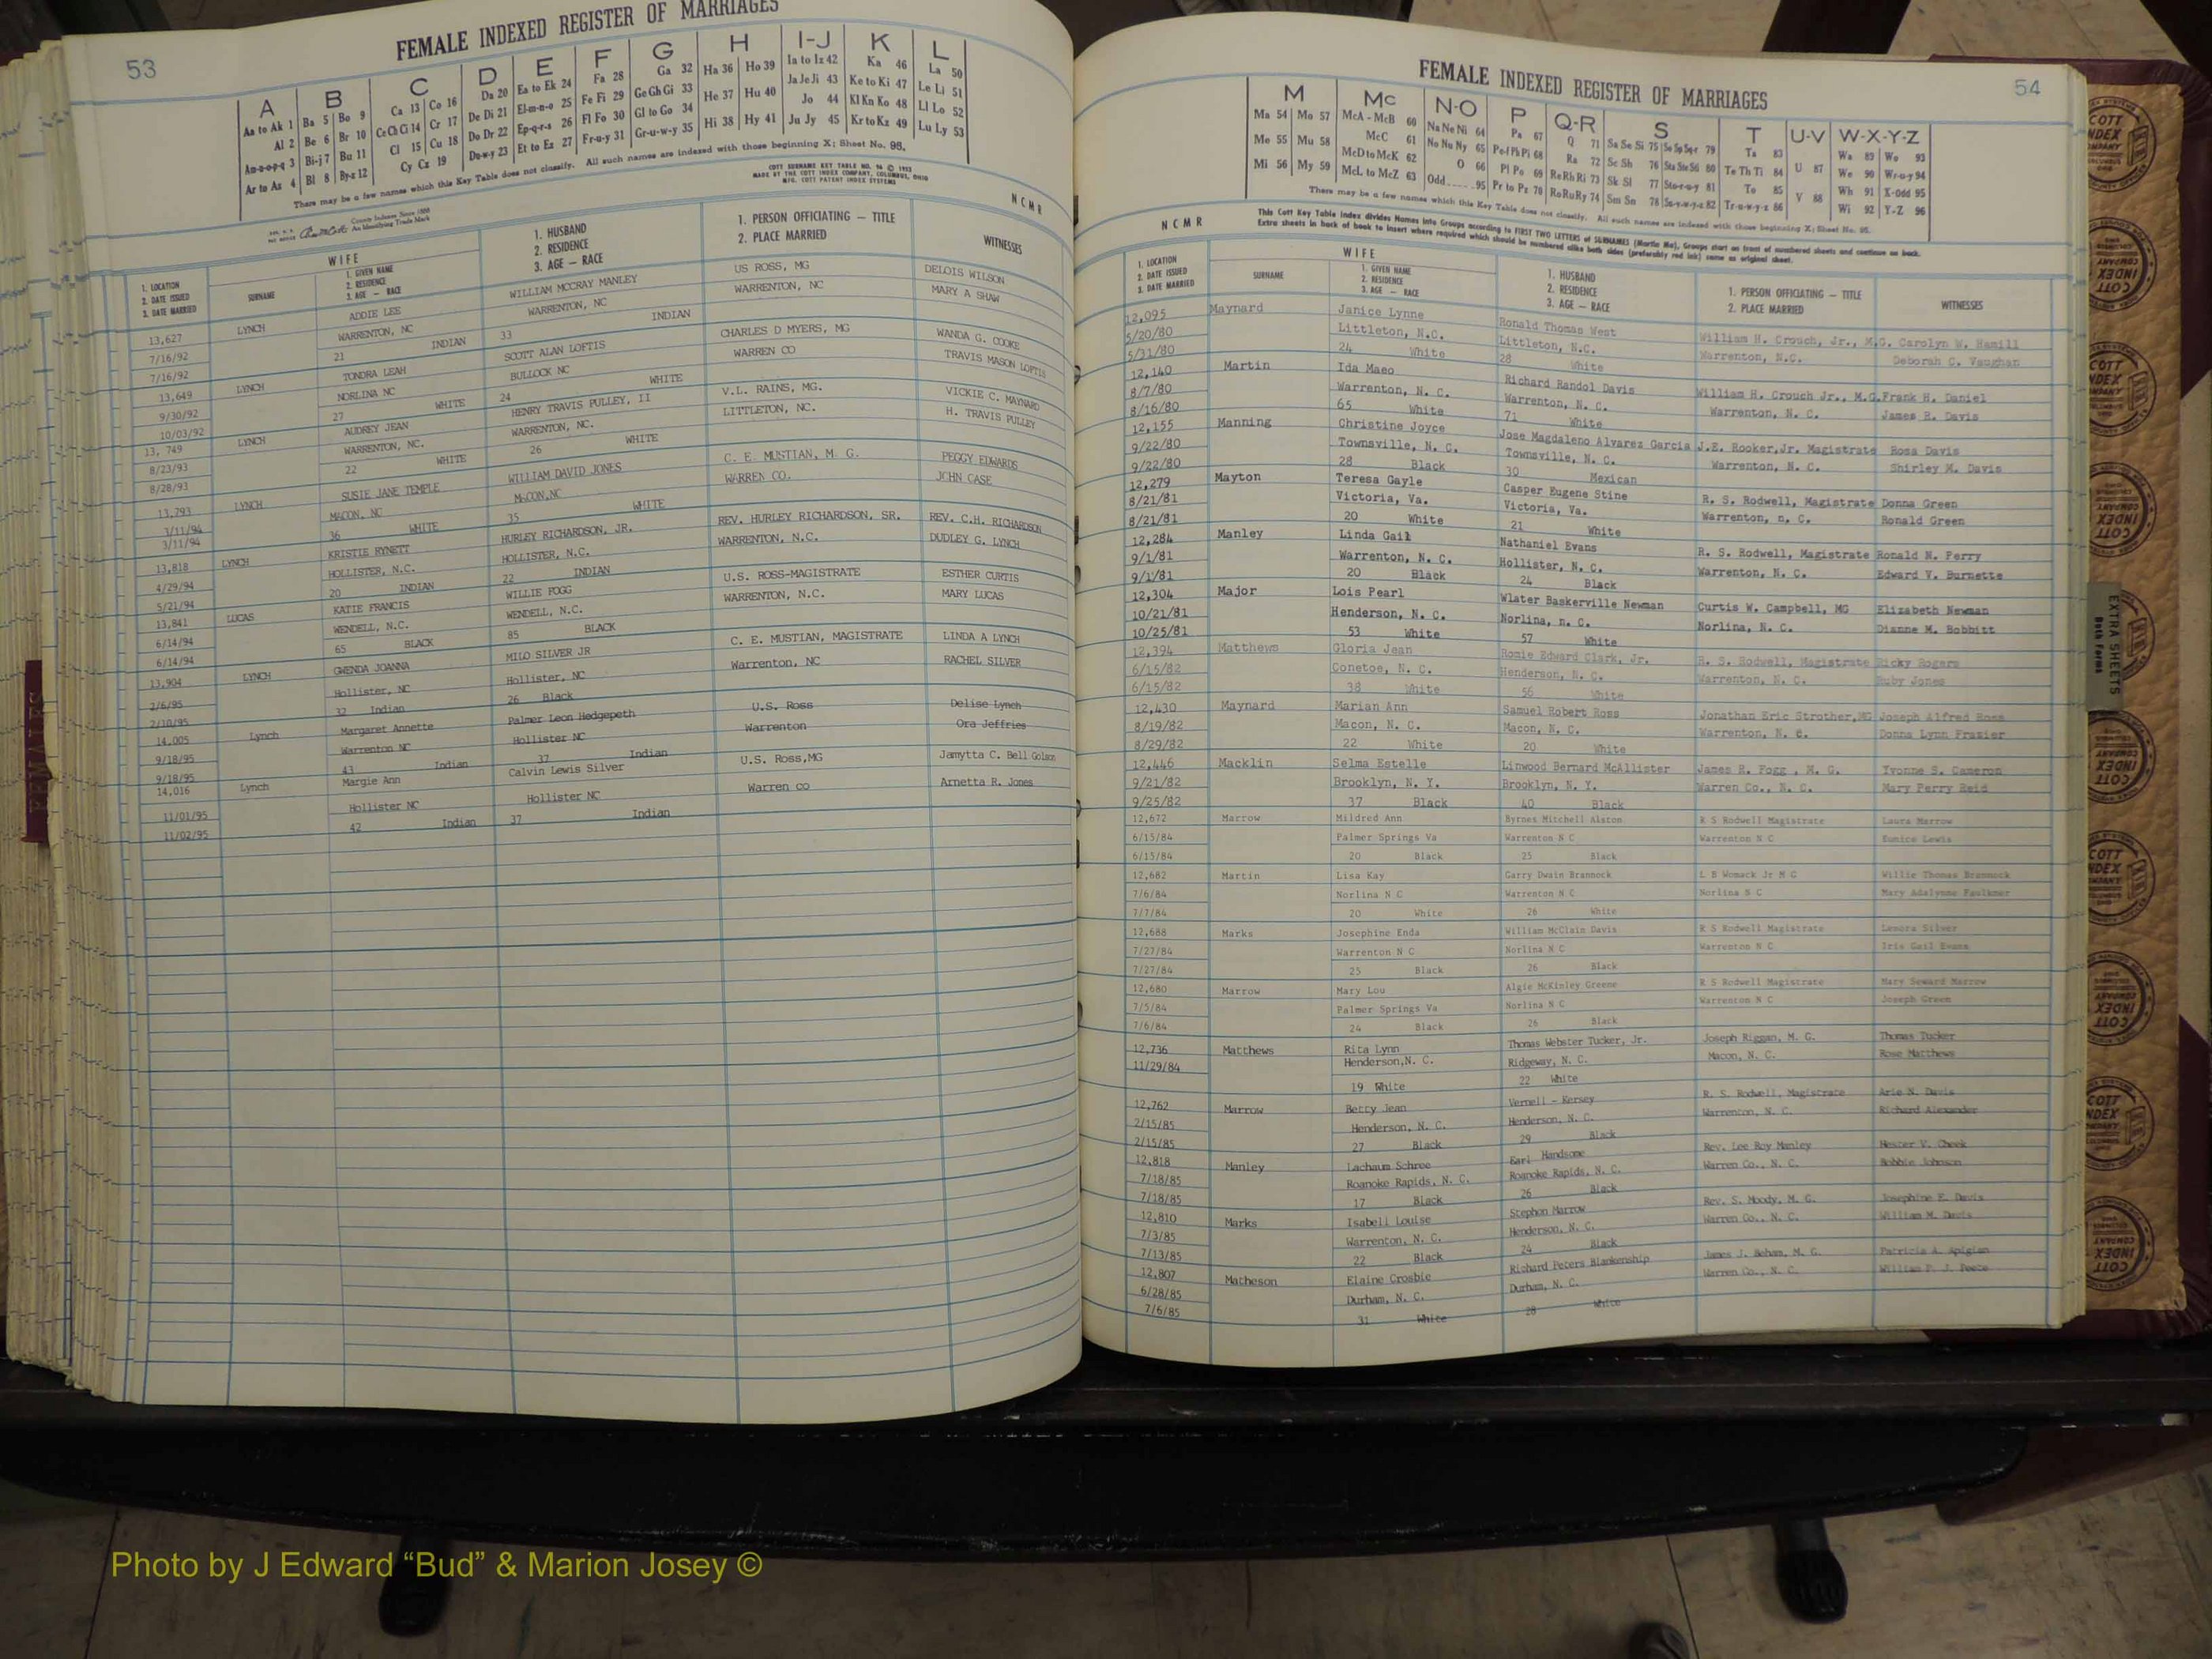 53
FEMALE INDEXED REGISTER OF MARRIAGES
A B C D E F G H I-J K L
Aa to Ak 1 Ba 5 Bo 9 Ca 13 Co 16 Da 20 Ea to Ek 24 Fa 28 Ga 32 Ha 36 Ho 39 Ia to Iz 42 Ka 46 La 50
Al 2 Be 6 Br 10 Ce Ch Ci 14 Cr 17 De Di 21 El-m-n-o 25 Fe Fi 29 Ge Gh Gi 33 He 37 Hu 40 Ja Je Ji 43 Ke to Ki 47 Le Li 51
Am-n-o-p-q 3 Bi-j 7 Bu 11 Cl 15 Cu 18 Do Dr 22 Ep-q-r-s 26 Fl Fo 30 Gl to Go 34 Hi 38 Hy 41 Jo 44 Kl Kn Ko 48 Ll Lo 52
Ar to Az 4 Bl 8 By-z 12 Cy Cz 19 Du-w-y 23 Et to Ez 27 Fr-u-y 31 Gr-u-w-y 35 Ju Jy 45 Kr to Kz 49 Lu Ly 53
There may be a few names which this Key Table does not classify. All such names are indexed with those beginning X; Sheet No. 95.
COTT SURNAME KEY TABLE NO. 96 © 1952
MADE BY THE COTT INDEX COMPANY, COLUMBUS, OHIO
MFG. COTT PATENT INDEX SYSTEMS
County Indexes Since 1888
An Identifying Trade Mark
NCMR
WIFE
1. LOCATION
2. DATE ISSUED
3. DATE MARRIED
SURNAME
1. GIVEN NAME
2. RESIDENCE
3. AGE — RACE
1. HUSBAND
2. RESIDENCE
3. AGE — RACE
1. PERSON OFFICIATING — TITLE
2. PLACE MARRIED
WITNESSES
13,627 LYNCH ADDIE LEE WILLIAM MCCRAY MANLEY US ROSS, MG DELOIS WILSON
7/16/92 WARRENTON, NC WARRENTON, NC WARRENTON, NC MARY A SHAW
7/16/92 21 INDIAN 33 INDIAN
13,649 LYNCH TONDRA LEAH SCOTT ALAN LOFTIS CHARLES D MYERS, MG WANDA G. COOKE
9/30/92 NORLINA NC BULLOCK NC WARREN CO TRAVIS MASON LOFTIS
10/03/92 27 WHITE 24 WHITE
13, 749 LYNCH AUDREY JEAN HENRY TRAVIS PULLEY, II V.L. RAINS, MG. VICKIE C. MAYNARD
8/23/93 WARRENTON, NC. WARRENTON, NC. LITTLETON, NC. H. TRAVIS PULLEY
8/28/93 22 WHITE 26 WHITE
13,793 LYNCH SUSIE JANE TEMPLE WILLIAM DAVID JONES C. E. MUSTIAN, M. G. PEGGY EDWARDS
3/11/94 MACON, NC MACON,NC WARREN CO. JOHN CASE
3/11/94 36 WHITE 35 WHITE
13,818 LYNCH KRISTIE RYNETT HURLEY RICHARDSON, JR. REV. HURLEY RICHARDSON, SR. REV. C.H. RICHARDSON
4/29/94 HOLLISTER, N.C. HOLLISTER, N.C. WARRENTON, N.C. DUDLEY G. LYNCH
5/21/94 20 INDIAN 22 INDIAN
13,841 LUCAS KATIE FRANCIS WILLIE FOGG U.S. ROSS-MAGISTRATE ESTHER CURTIS
6/14/94 WENDELL, N.C. WENDELL, N.C. WARRENTON, N.C. MARY LUCAS
6/14/94 65 BLACK 85 BLACK
13,904 LYNCH GWENDA JOANNA MILO SILVER JR C. E. MUSTIAN, MAGISTRATE LINDA A LYNCH
2/6/95 Hollister, NC Hollister, NC Warrenton, NC RACHEL SILVER
2/10/95 32 Indian 26 Black
14,005 Lynch Margaret Annette Palmer Leon Hedgepeth U.S. Ross Delise Lynch
9/18/95 Warrenton NC Hollister NC Warrenton Ora Jeffries
9/18/95 43 Indian 37 Indian
14,016 Lynch Margie Ann Calvin Lewis Silver U.S. Ross,MG Jamytta C. Bell Golson
11/01/95 Hollister NC Hollister NC Warren co Arnetta R. Jones
11/02/95 42 Indian 37 Indian
54
FEMALE INDEXED REGISTER OF MARRIAGES
M Mc N-O P Q-R S T U-V W-X-Y-Z
Ma 54 Mo 57 McA - McB 60 Na Ne Ni 64 Pa 67 Q 71 Sa Se Si 75 So Sp Sq-r 79 Ta 83 U 87 Wa 89 Wo 93
Me 55 Mu 58 McC 61 No Nu Ny 65 Pe-f Ph Pi 68 Ra 72 Sc Sh 76 Sta Ste Sti 80 Te Th Ti 84 V 88 We 90 Wr-u-y 94
Mi 56 My 59 McD to McK 62 O 66 Pl Po 69 Re Rh Ri 73 Sk Sl 77 Sto-r-u-y 81 To 85 Wh 91 X-Odd 95
McL to McZ 63 Odd 95 Pr to Pz 70 Ro Ru Ry 74 Sm Sn 78 Su-v-w-y-z 82 Tr-u-w-y-z 86 Wi 92 Y-Z 96
There may be a few names which this Key Table does not classify. All such names are indexed with those beginning X; Sheet No. 95.
This Cott Key Table Index divides Names into Groups according to FIRST TWO LETTERS of SURNAMES (Martin Ma). Groups start on front of numbered sheets and continue on back.
Extra sheets in back of book to insert where required which should be numbered alike both sides (preferably red ink) same as original sheet.
NCMR
WIFE
1. LOCATION
2. DATE ISSUED
3. DATE MARRIED
SURNAME
1. GIVEN NAME
2. RESIDENCE
3. AGE — RACE
1. HUSBAND
2. RESIDENCE
3. AGE — RACE
1. PERSON OFFICIATING — TITLE
2. PLACE MARRIED
WITNESSES
12,095 Maynard Janice Lynne Ronald Thomas West William H. Crouch, Jr., M.G. Carolyn W. Hamill
5/20/80 Littleton, N.C. Littleton, N.C. Warrenton, N.C. Deborah C. Vaughan
5/31/80 24 White 28 White
12,140 Martin Ida Maeo Richard Randol Davis William H. Crouch Jr., M.G. Frank H. Daniel
8/7/80 Warrenton, N. C. Warrenton, N. C. Warrenton, N. C. James R. Davis
8/16/80 65 White 71 White
12,155 Manning Christine Joyce Jose Magdaleno Alvarez Garcia J.E. Rooker,Jr. Magistrate Rosa Davis
9/22/80 Townsville, N. C. Townsville, N. C. Warrenton, N. C. Shirley M. Davis
9/22/80 28 Black 30 Mexican
12,279 Mayton Teresa Gayle Casper Eugene Stine R. S. Rodwell, Magistrate Donna Green
8/21/81 Victoria, Va. Victoria, Va. Warrenton, n. C. Ronald Green
8/21/81 20 White 21 White
12,284 Manley Linda Gail Nathaniel Evans R. S. Rodwell, Magistrate Ronald N. Perry
9/1/81 Warrenton, N. C. Hollister, N. C. Warrenton, N. C. Edward V. Burnette
9/1/81 20 Black 24 Black
12,304 Major Lois Pearl Wlater Baskerville Newman Curtis W. Campbell, MG Elizabeth Newman
10/21/81 Henderson, N. C. Norlina, n. C. Norlina, N. C. Dianne M. Bobbitt
10/25/81 53 White 57 White
12,394 Matthews Gloria Jean Romie Edward Clark, Jr. R. S. Rodwell, Magistrate Ricky Rogers
6/15/82 Conetoe, N. C. Henderson, N. C. Warrenton, N. C. Ruby Jones
6/15/82 38 White 56 White
12,430 Maynard Marian Ann Samuel Robert Ross Jonathan Eric Strother,MG Joseph Alfred Ross
8/19/82 Macon, N. C. Macon, N. C. Warrenton, N. C. Donna Lynn Frazier
8/29/82 22 White 20 White
12,446 Macklin Selma Estelle Linwood Bernard McAllister James R. Fogg , M. G. Yvonne S. Cameron
9/21/82 Brooklyn, N. Y. Brooklyn, N. Y. Warren Co., N. C. Mary Perry Reid
9/25/82 37 Black 40 Black
12,672 Marrow Mildred Ann Byrnes Mitchell Alston R S Rodwell Magistrate Laura Marrow
6/15/84 Palmer Springs Va Warrenton N C Warrenton N C Eunice Lewis
6/15/84 20 Black 25 Black
12,682 Martin Lisa Kay Garry Dwain Brannock L B Womack Jr M G Willie Thomas Brannock
7/6/84 Norlina N C Warrenton N C Norlina N C Mary Adalynne Faulkner
7/7/84 20 White 26 White
12,688 Marks Josephine Enda William McClain Davis R S Rodwell Magistrate Lenora Silver
7/27/84 Warrenton N C Norlina N C Warrenton N C Iris Gail Evans
7/27/84 25 Black 26 Black
12,680 Marrow Mary Lou Algie McKinley Greene R S Rodwell Magistrate Mary Seward Marrow
7/5/84 Palmer Springs Va Norlina N C Warrenton N C Joseph Green
7/6/84 24 Black 26 Black
12,736 Matthews Rita Lynn Thomas Webster Tucker, Jr. Joseph Riggan, M. G. Thomas Tucker
11/29/84 Henderson,N. C. Ridgeway, N. C. Macon, N. C. Rose Matthews
19 White 22 White
12,762 Marrow Betty Jean Vernell - Kersey R. S. Rodwell, Magistrate Arie N. Davis
2/15/85 Henderson, N. C. Henderson, N. C. Warrenton, N. C. Richard Alexander
2/15/85 27 Black 29 Black
12,818 Manley Lachaum Schree Earl Handsome Rev. Lee Roy Manley Hester V. Cheek
7/18/85 Roanoke Rapids, N. C. Roanoke Rapids, N. C. Warren Co., N. C. Bobbie Johnson
7/18/85 17 Black 26 Black
12,810 Marks Isabell Louise Stephon Marrow Rev. S. Moody, M. G. Josephine E. Davis
7/3/85 Warrenton, N. C. Henderson, N. C. Warren Co., N. C. William M. Davis
7/13/85 22 Black 24 Black
12,807 Matheson Elaine Crosbie Richard Peters Blankenship James J. Boham, M. G. Patricia A. Apigian
6/28/85 Durham, N. C. Durham, N. C. Warren Co., N. C. William P. J. Peete
7/6/85 31 White 28 White
EXTRA SHEETS
Both Forms
Photo by J Edward “Bud” & Marion Josey ©